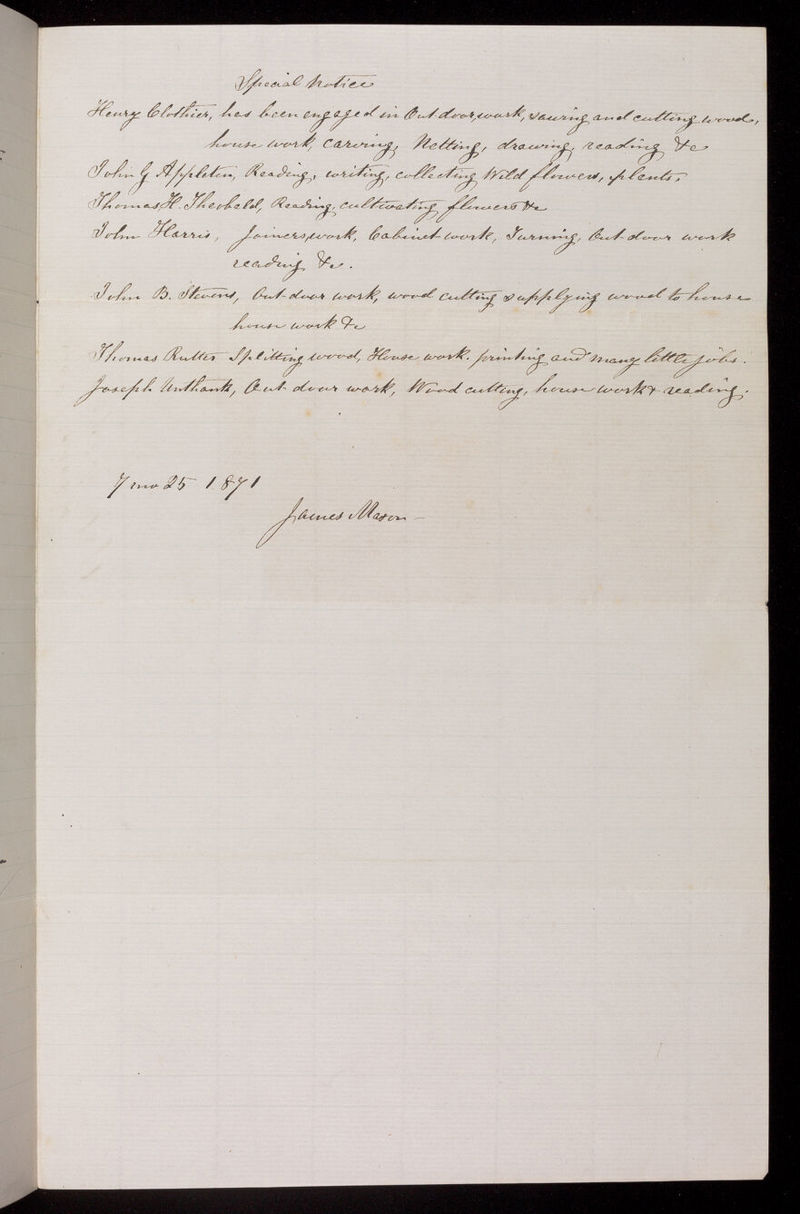 Special Notice
Henry Clothier, has been engaged in Out door, work, sawing and cutting wood,
house work, carving, Netting, drawing, reading &c
John G Appleton, Reading, writing, collecting Wild flowers, plants,
Thomas H. Theobeld, Reading, cultivating flowers &c
John Harris, Joiners, work, Cabinet work, Turning, Out door work
reading &c.
John B. Stevens, Out-door work, wood cutting supplying wood to house
house work &c
Thomas Rutter Splitting wood, House work. printing and many little jobs.
Joseph Unthank, Out-door work, Wood cutting, house work & reading.
7 mo 25 1871
James Mason